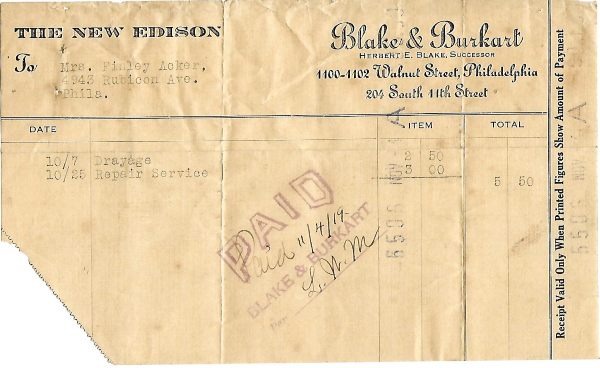 THE NEW EDISON
To
Mrs. Finley Acker,
4943 Rubicon Ave.
Phila.
Blake & Burkart
HERBERT E. BLAKE, SUCCESSOR
1100-1102 Walnut Street, Philadelphia
204 South 11th Street
DATE ITEM TOTAL
10/7 Drayage 2 50
10/25 Repair Service 3 00
5 50
PAID
Paid 11/4/19-
BLAKE & BURKART
L. W. M.
Per
A
NOV
Receipt Valid Only When Printed Figures Show Amount of Payment
A
NOV